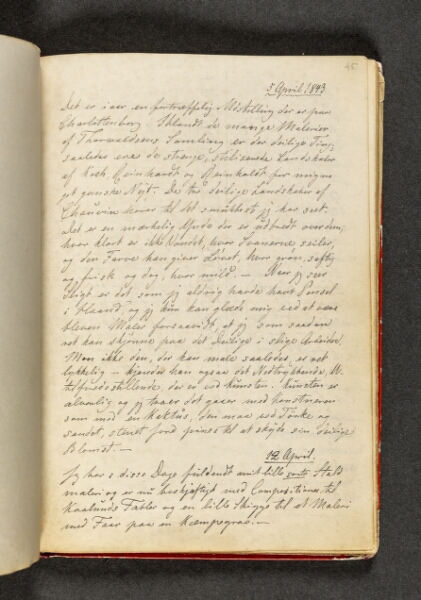 45
5 April 1843
Det er i aar en fortræffelig Udstilling der er paa
Charlottenborg. Iblandt de mange Malerier
af Thorvaldsens Samling er der deilige Ting,
saaledes ere de strenge, stiliserede Landskaber
af Koch, Reinhardt og Reinholdt for mig
et ganske Nyt. De to deilige Landskaber af
Chauvin hører til det smukkeste jeg har seet.
Det er en mærkelig Ynde der er udbredt over dem,
hvor klart er ikke Vandet, hvor Svanerne seiler,
og den Farve han giver Løvet, hvor grøn, saftig
og frisk og dog, hvor mild. — Naar jeg seer
Sligt er det som jeg aldrig havde havt Pensel
i Haand og jeg kun kan glæde mig ved at være
bleven Maler forsaavidt, at jeg som saadan
ret kan skjønne paa det Deilige i slige Arbeider.
Mon ikke den, der kan male saaledes, er ret
lykkelig — kjender han ogsaa det Nedtrykkende, U-
tilfredsstillende, der er ved Kunsten. Kunsten er
alvorlig og jeg troer det gaaer med Konstneren
som med en Kaktus, den maa ved Tørke og
sandet, stenet Jord pines til at skyde sin deilige
Blomst. —
12 April.
Jeg har i disse Dage fuldendt mit lille Stald
maleri og er nu beskjæftiget med Compositioner til
Kaalunds Fabler og en lille Skizze til et Maleri
med Faar paa en Kæmpegrav. —